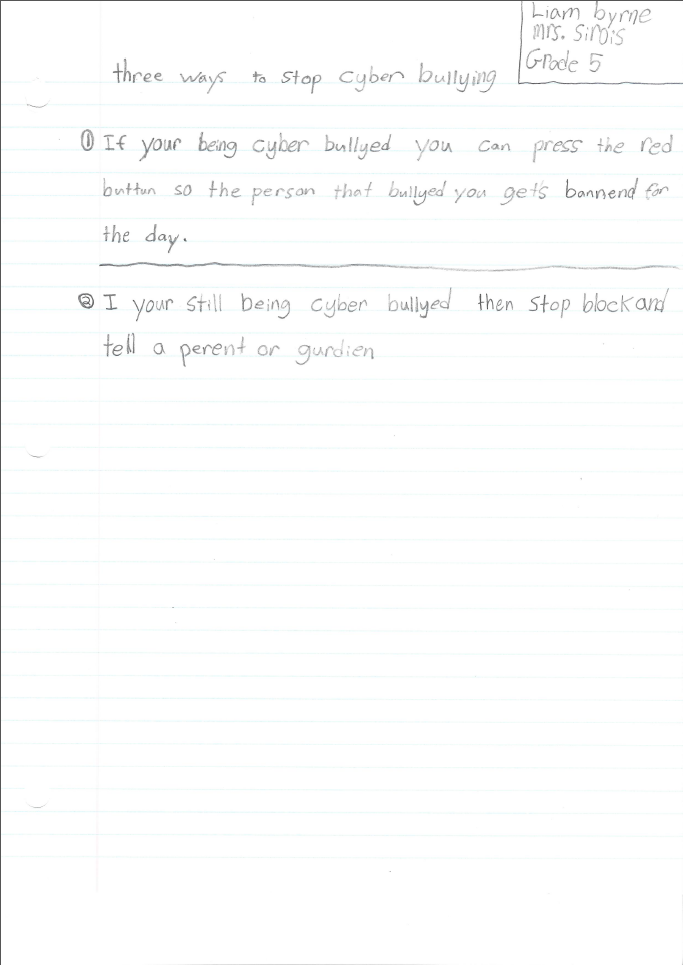 Liam byrne
mrs. Sirois
Grade 5
three ways to stop cyber bullying
① If your being cyber bullyed you can press the red
buttun so the person that bullyed you gets bannend for
the day.
② I your still being cyber bullyed then stop block and
tell a perent or gurdien